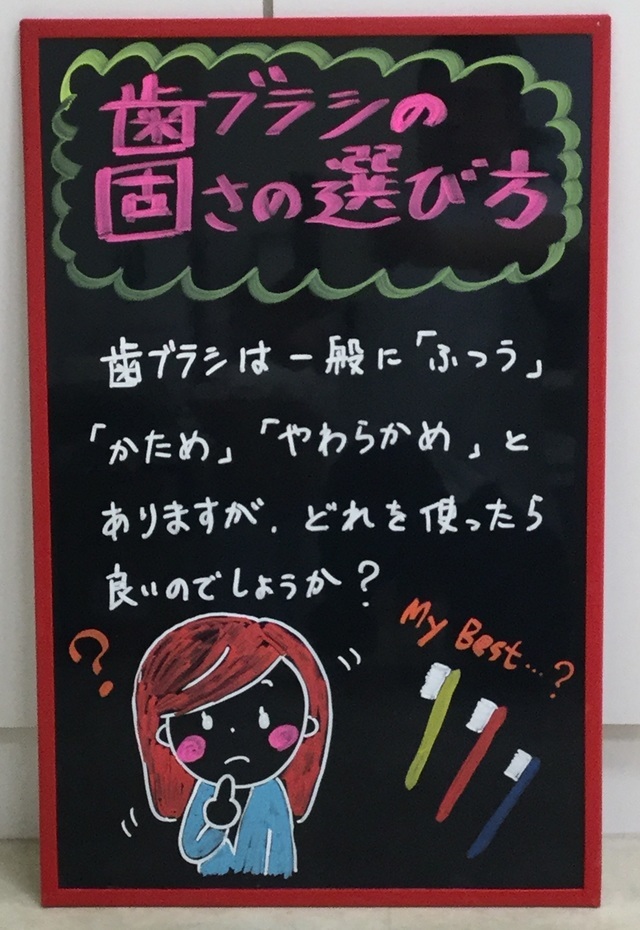 歯ブラシの
固さの選び方
歯ブラシは一般に「ふつう」
「かため」「やわらかめ」と
ありますが、どれを使ったら
良いのでしょうか？
?
My Best...?